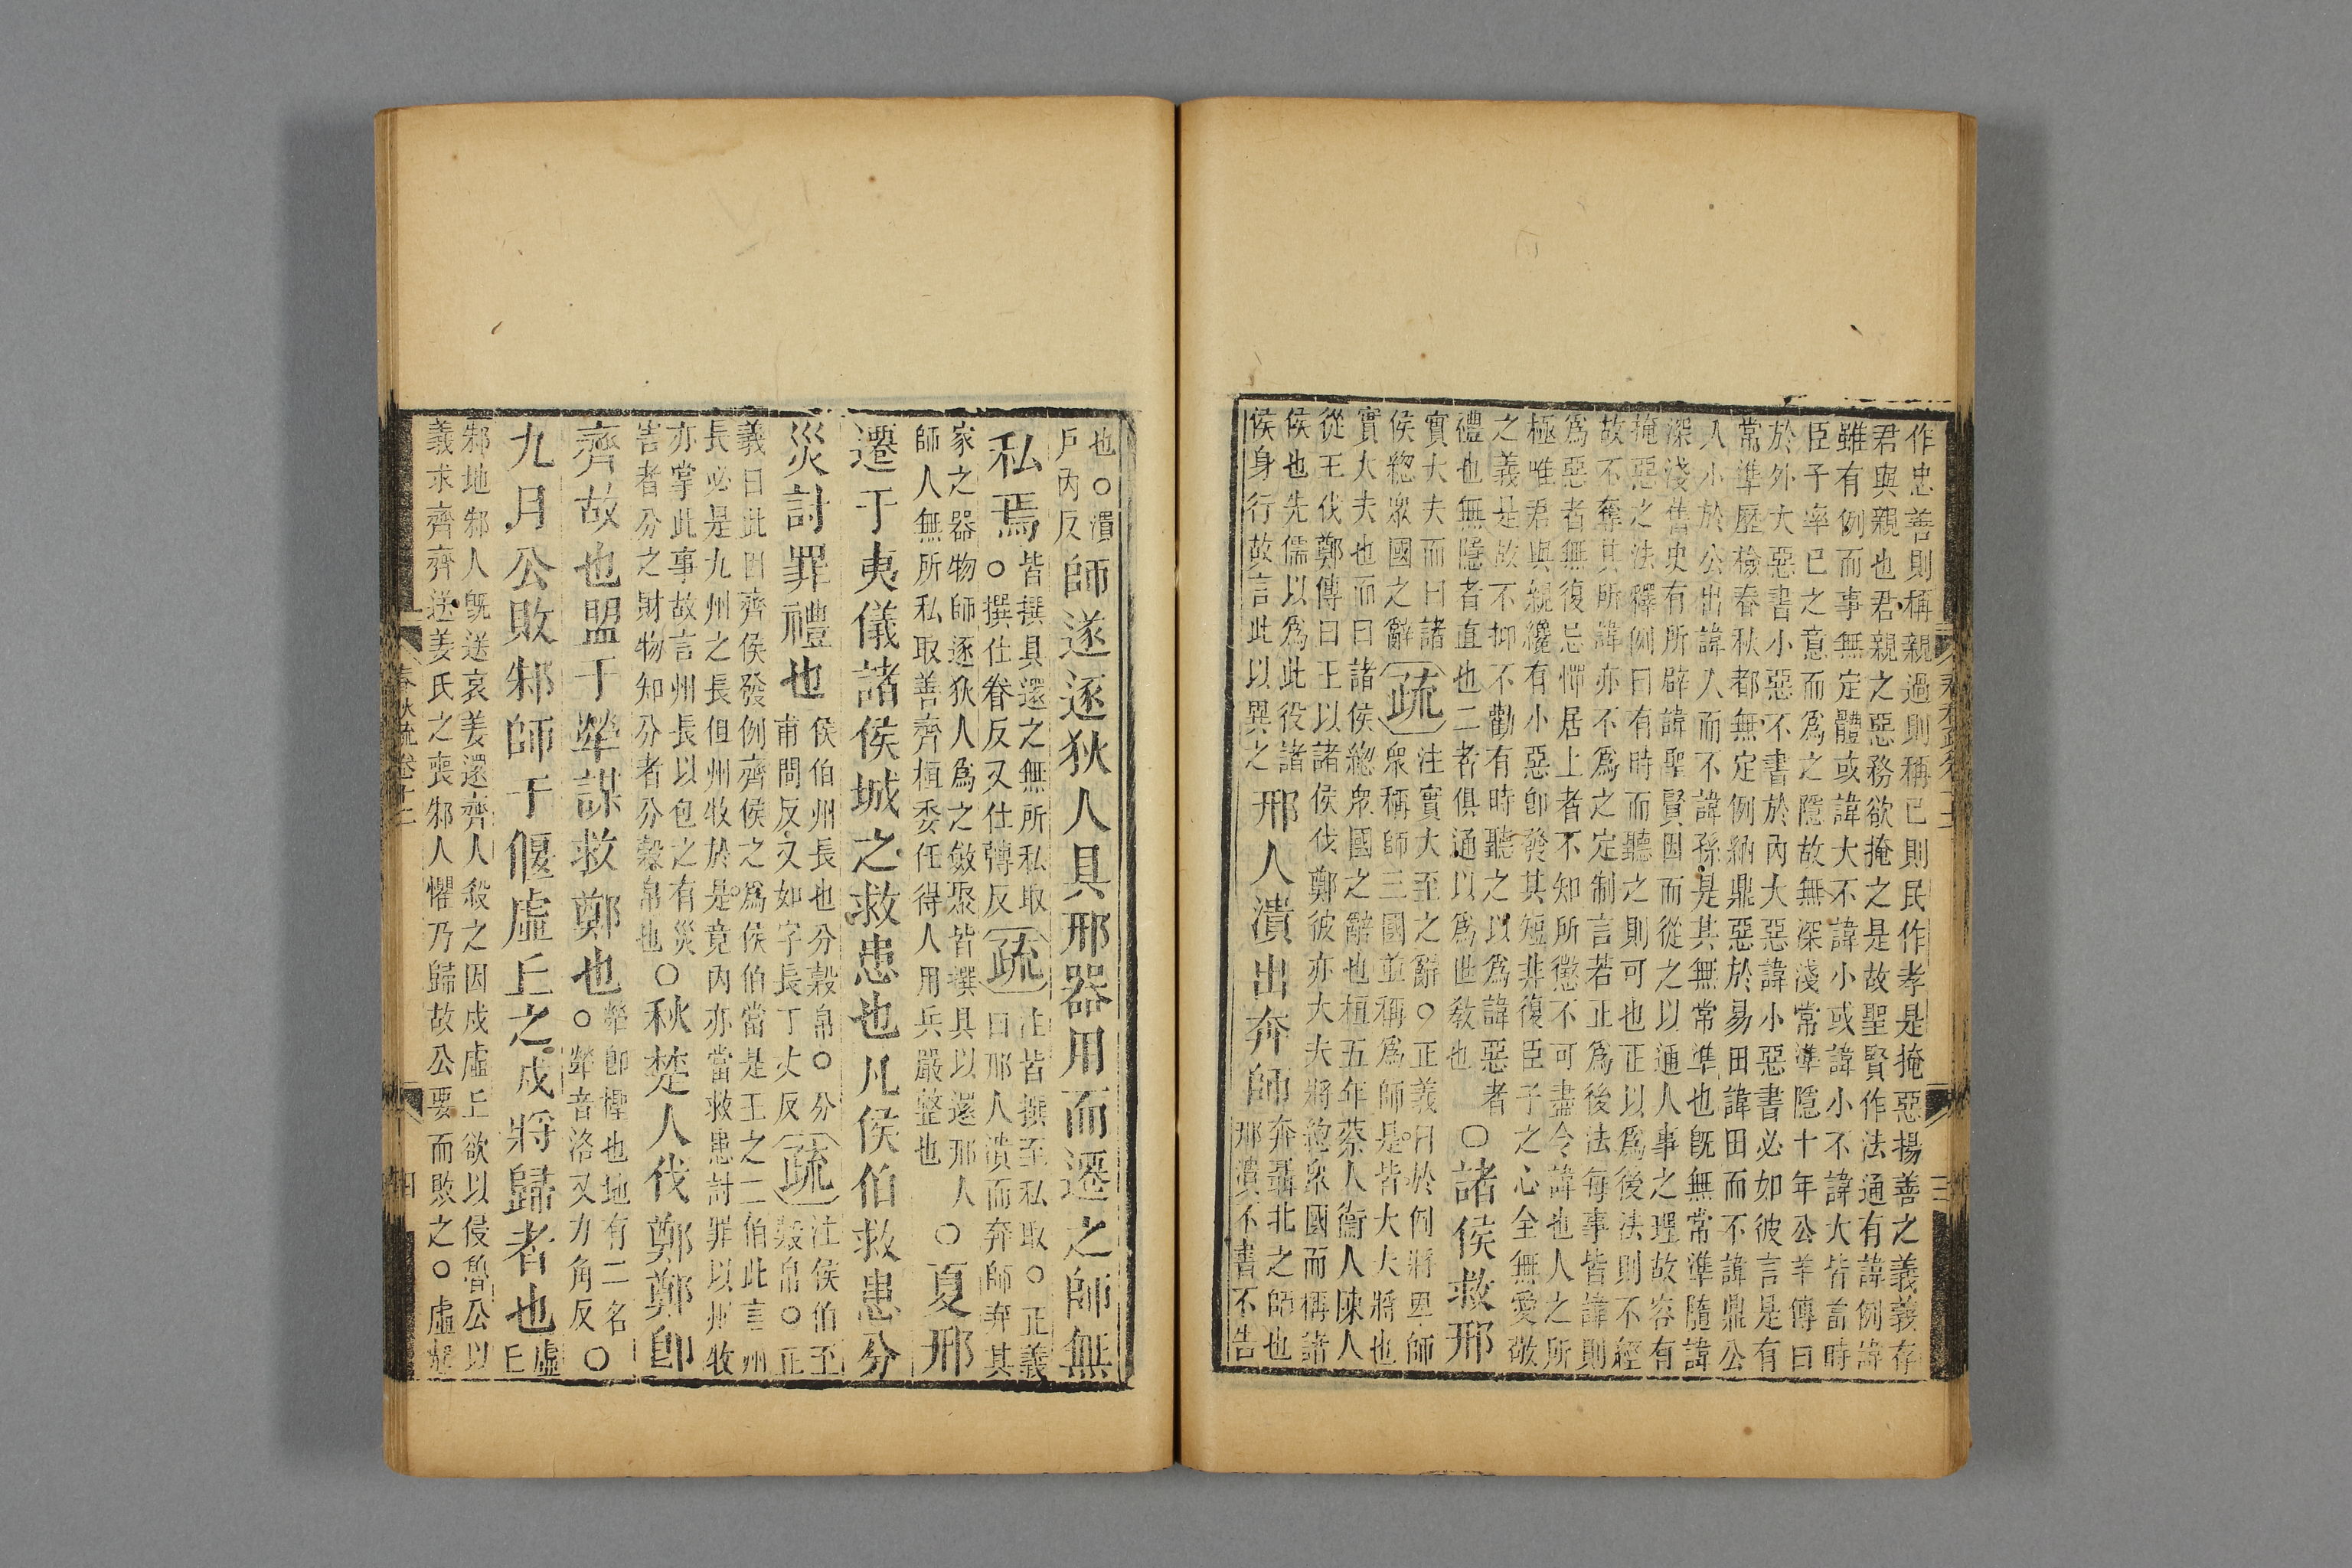 作忠善則稱親過則稱已則民作孝是掩惡揚善之義義存
君與親也君親之惡務欲掩之是故聖賢作法通有諱例諱
雖有例而事無定體或諱大不諱小或諱小不諱大皆言時
臣子率已之意而爲之隱故無深淺常準隱十年公羊傳曰
於外大惡書小惡不書於內大惡諱小惡書必如彼言是有
常準歷檢春秋都無定例納鼎惡於易田諱田而不諱鼎公
入小於公出諱入而不諱孫是其無常準也旣無常準隨諱
深淺舊史有所辟諱聖賢因而從之以通人事之理故容有
掩惡之法釋例曰有時而聽之則可也正以爲後法則不經
故不奪其所諱亦不爲之定制言若正爲後法每事皆諱則
爲惡者無復忌憚居上者不知所懲不可盡令諱也人之所
極唯君與親纔有小惡卽發其短非復臣子之心全無愛敬
之義是故不抑不勸有時聽之以爲諱惡者
禮也無隱者直也二者俱通以爲世敎也○諸侯救邢
實大夫而曰諸侯緫衆國之辭
疏
注實大至之辭○正義曰於例將卑師
衆稱師三國並稱爲師是皆大夫將也
實大夫也而曰諸侯緫衆國之辭也桓五年蔡人衞人陳人
從王伐鄭傳曰王以諸侯伐鄭彼亦大夫將緫衆國而稱諸
侯也先儒以爲此役諸
侯身行故言此以異之
邢人潰出奔師
奔聶北之師也
邢潰不書不告
也○潰
戶內反
師遂逐狄人具邢器用而遷之師無
私焉
皆撰具還之無所私取
○撰仕眷反又仕轉反
疏
注皆撰至私取○正義
曰邢人潰而奔師弃其
家之器物師逐狄人爲之斂聚皆撰具以還邢人
師人無所私取善齊桓委任得人用兵嚴整也
○夏邢
遷于夷儀諸侯城之救患也凡侯伯救患分
災討罪禮也
侯伯州長也分穀帛○分
甫問反又如字長丁丈反
疏
注侯伯至
穀帛○正
義曰此因齊侯發例齊侯之爲侯伯當是王之二伯此言州
長必是九州之長但州牧於是竟內亦當救患討罪以州牧
亦掌此事故言州長以包之有災
害者分之財物知分者分穀帛也
○秋楚人伐鄭鄭卽
齊故也盟于犖謀救鄭也
犖卽檉也地有二名
○犖音洛又力角反
○
九月公敗邾師于偃虛丘之戍將歸者也
虛丘
邾地邾人旣送哀姜還齊人殺之因戍虛丘欲以侵魯公以
義求齊齊送姜氏之喪邾人懼乃歸故公要而敗之○虛起
春秋疏卷十二
四